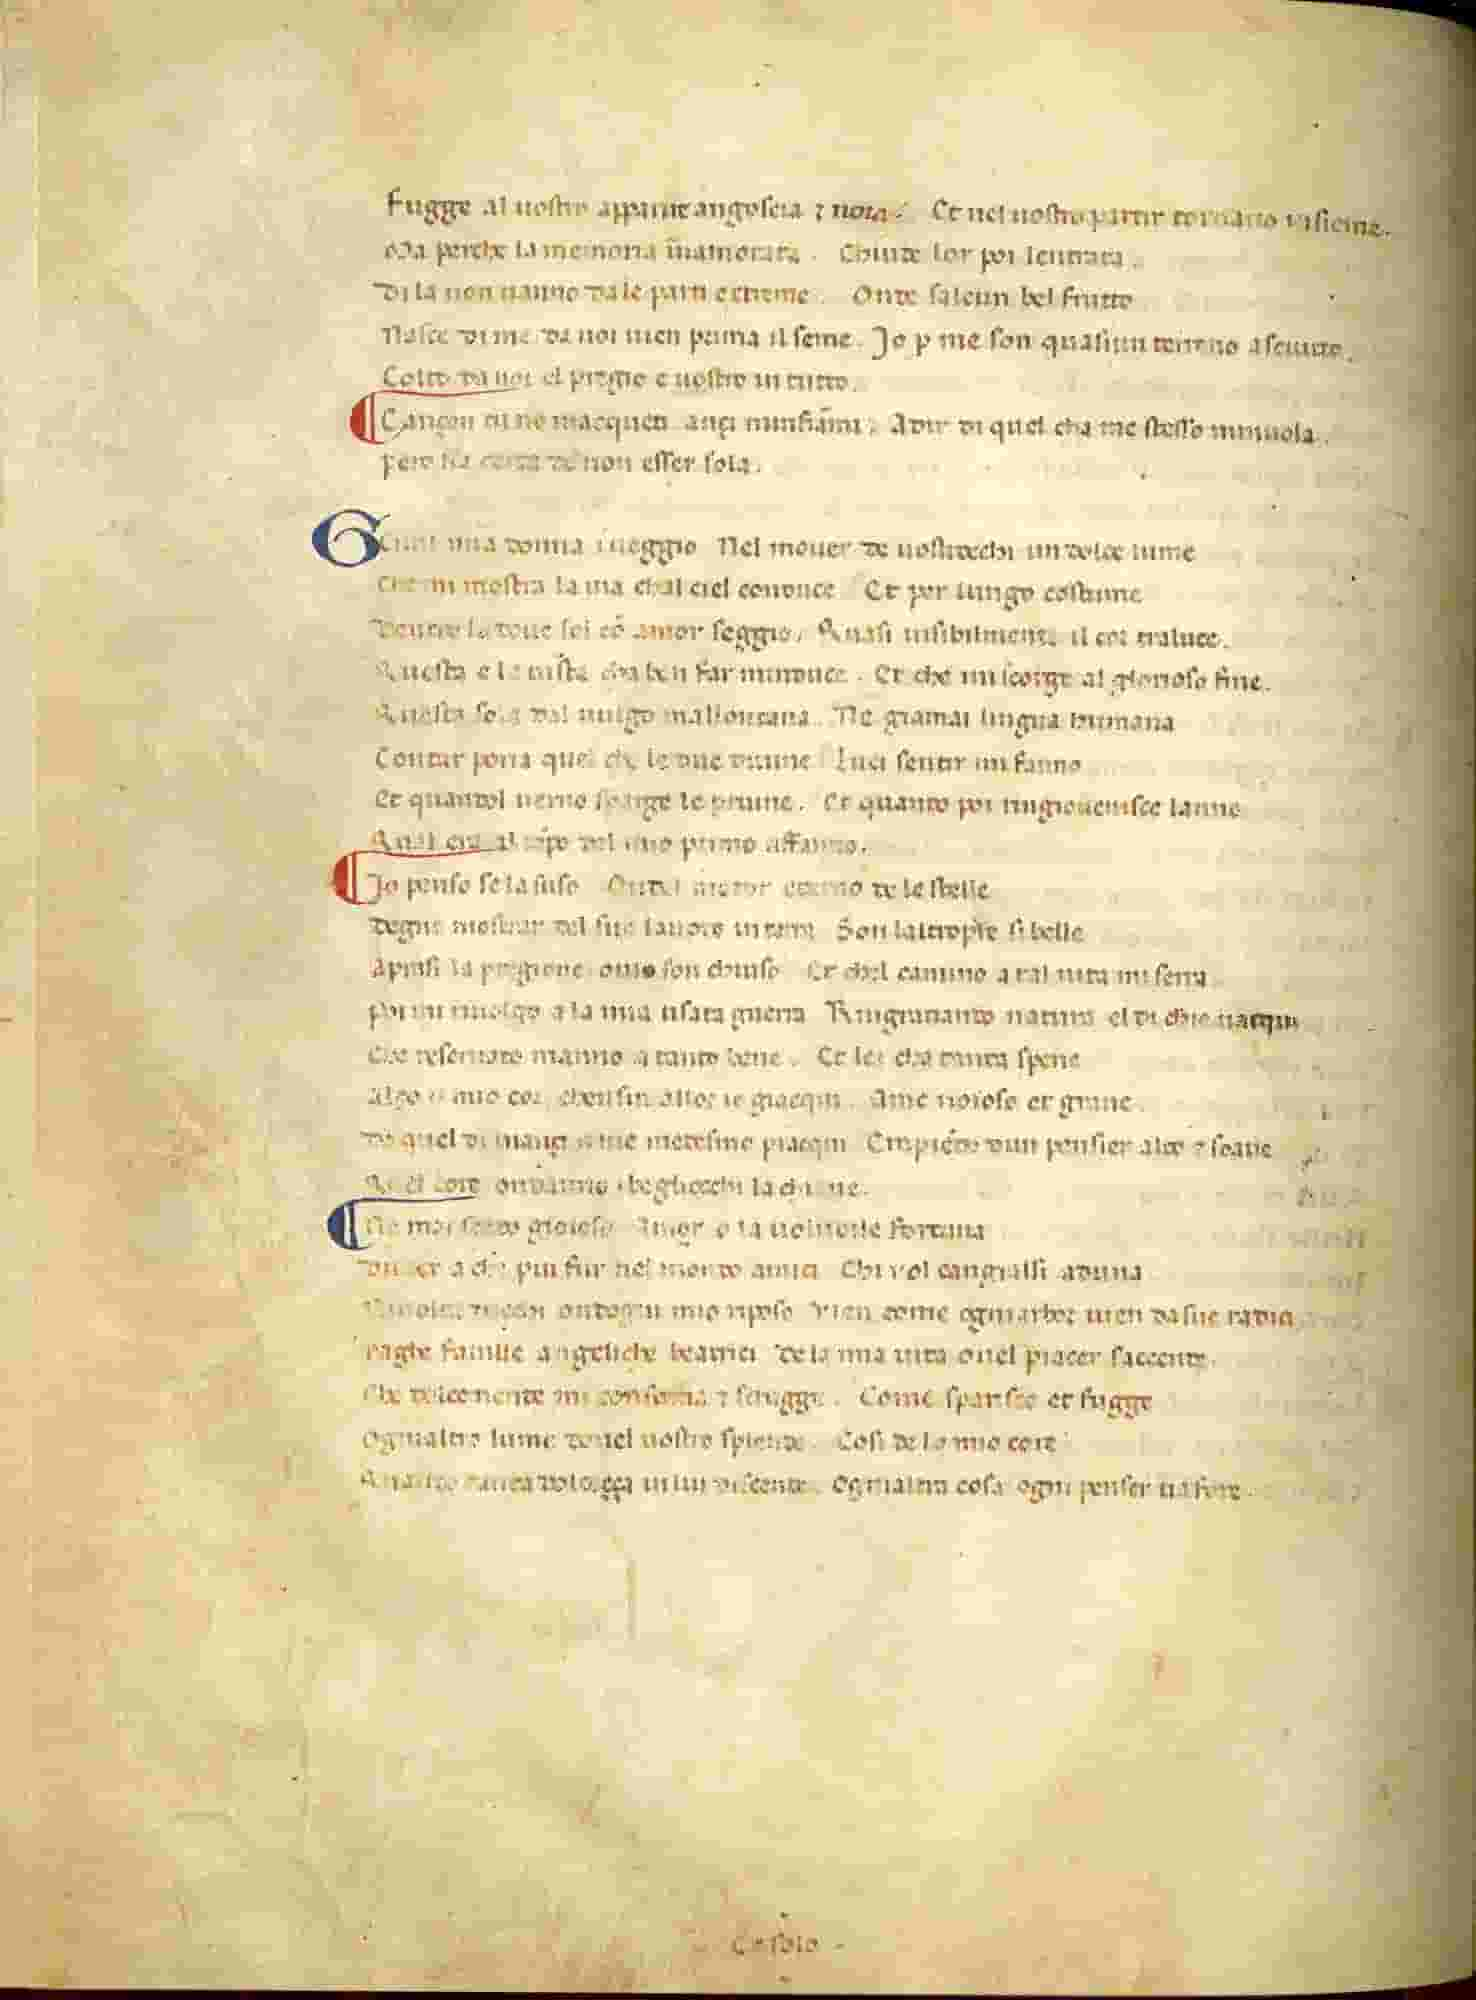 Fugge al uostro apparire angoscia ⁊ noia. Et nel uostro partir tornano insieme.
Ma perche la memoria inamorata. Chiude lor poi lentrata.
Di la non uanno da le parti extreme. Onde salcun bel frutto
Nasce di me da uoi uien prima il seme. Jo p me son quasi un terreno asciutto.
Colto da uoi el pregio e uostro in tutto.
Cançon tu no macqueti ançi minfiāmi. A dir di quel cha me stesso minuola.
pero sia certa de non esser sola.
Gentil mia donna i ueggio Nel mouer de uostrocchi un dolce lume
Che mi mostra la uia chal ciel conduce Et per lungo costume
Dentro la doue sol cō amor seggio. Quasi uisibilmente il cor traluce.
Questa e la uista cha ben far minduce. Et che mi scorge al glorioso fine.
Questa sola dal uulgo mallontana. Ne giamai lingua humana
Contar poria quel che le due diuine Luci sentir mi fanno
Et quandol uerno sparge le pruine. Et quando poi ringiouenisce lanno
Qual era al tēpo del mio primo affanno.
Jo penso se la suso Ondel motor eterno de le stelle
Degno mostrar del suo lauoro in terra Son laltropre si belle
Aprasi la pregione ouio son chiuso Et chel camino a tal uita mi serra
Poi mi riuolgo a la mia usata guerra Ringratiando natura el di chio nacqui
Che reseruato manno a tanto bene. Et lei cha tanta spene
Alço il mio cor. chensin allor io giacqui. A me noioso et graue.
Da quel di inançi a me medesmo piacqui Empiēdo dun pensier alto ⁊ soaue
Quel core ondanno i begliocchi la chiaue.
Ne mai stato gioioso Amor o la uolubile fortuna
Dieder a chi piu fur nel mondo amici Chi nol cangiassi aduna
Riuolta docchi ondogni mio riposo Vien come ogniarbor uien da sue radici
Vaghe fauille angeliche beatrici De la mia uita ouel piacer saccende.
Che dolcemente mi consuma ⁊ strugge. Come sparisce et fugge
Ognialtro lume douel uostro splende. Cosi de lo mio core
Quando tanta dolceçça in lui discende. Ogni altra cosa ogni penser ua fore.
Et solo